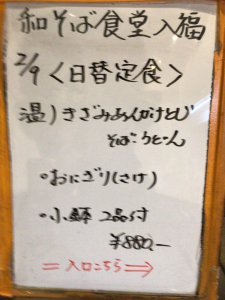 和そば食堂入福
2/9 <日替定食>
温) きざみあんかけとじ
そば・うどん
・おにぎり(さけ)
・小鉢 2品付
¥880,-
=入口こちら⇒